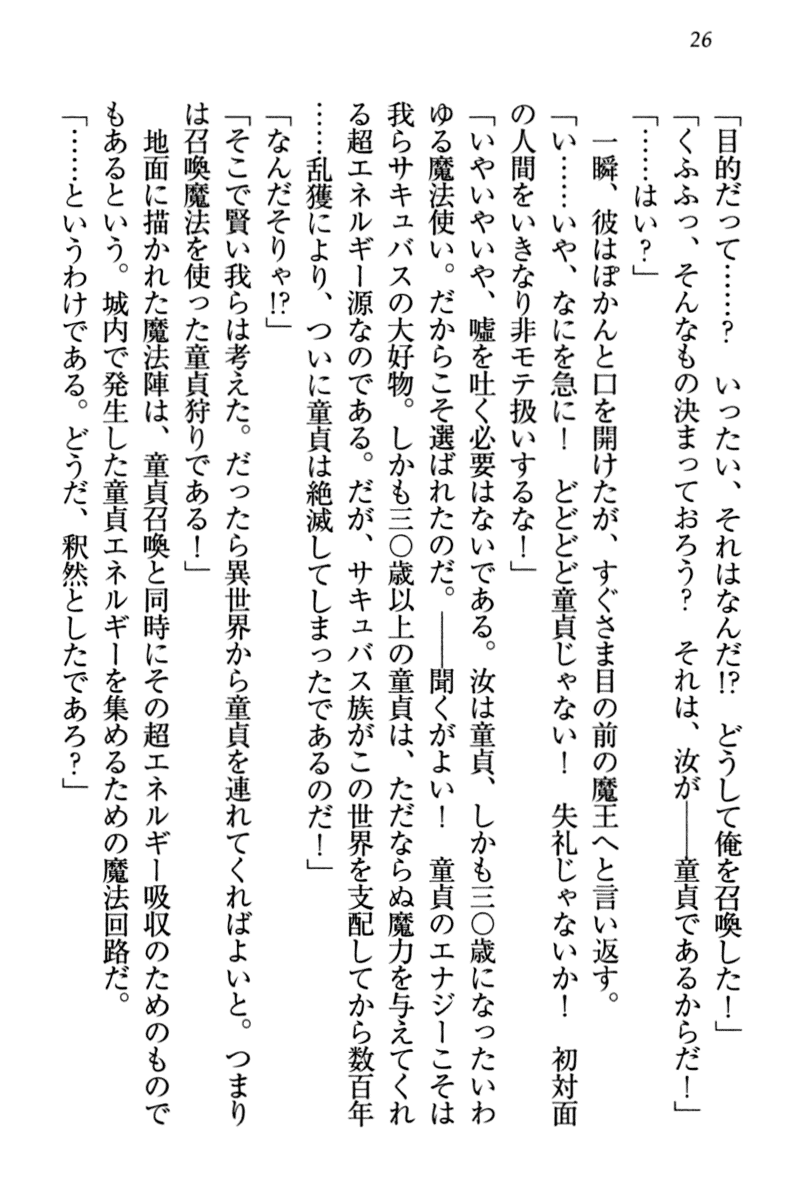 26
「目的だって……？　いったい、それはなんだ!?　どうして俺を召喚した！」
「くふふっ、そんなもの決まっておろう？　それは、汝が――童貞であるからだ！」
「……はい？」
　一瞬、彼はぽかんと口を開けたが、すぐさま目の前の魔王へと言い返す。
「い……いや、なにを急に！　どどどど童貞じゃない！　失礼じゃないか！　初対面
の人間をいきなり非モテ扱いするな！」
「いやいやいや、嘘を吐く必要はないである。汝は童貞、しかも三〇歳になったいわ
ゆる魔法使い。だからこそ選ばれたのだ。――聞くがよい！　童貞のエナジーこそは
我らサキュバスの大好物。しかも三〇歳以上の童貞は、ただならぬ魔力を与えてくれ
る超エネルギー源なのである。だが、サキュバス族がこの世界を支配してから数百年
……乱獲により、ついに童貞は絶滅してしまったであるのだ！」
「なんだそりゃ!?」
「そこで賢い我らは考えた。だったら異世界から童貞を連れてくればよいと。つまり
は召喚魔法を使った童貞狩りである！」
　地面に描かれた魔法陣は、童貞召喚と同時にその超エネルギー吸収のためのもので
もあるという。城内で発生した童貞エネルギーを集めるための魔法回路だ。
「……というわけである。どうだ、釈然としたであろ？」